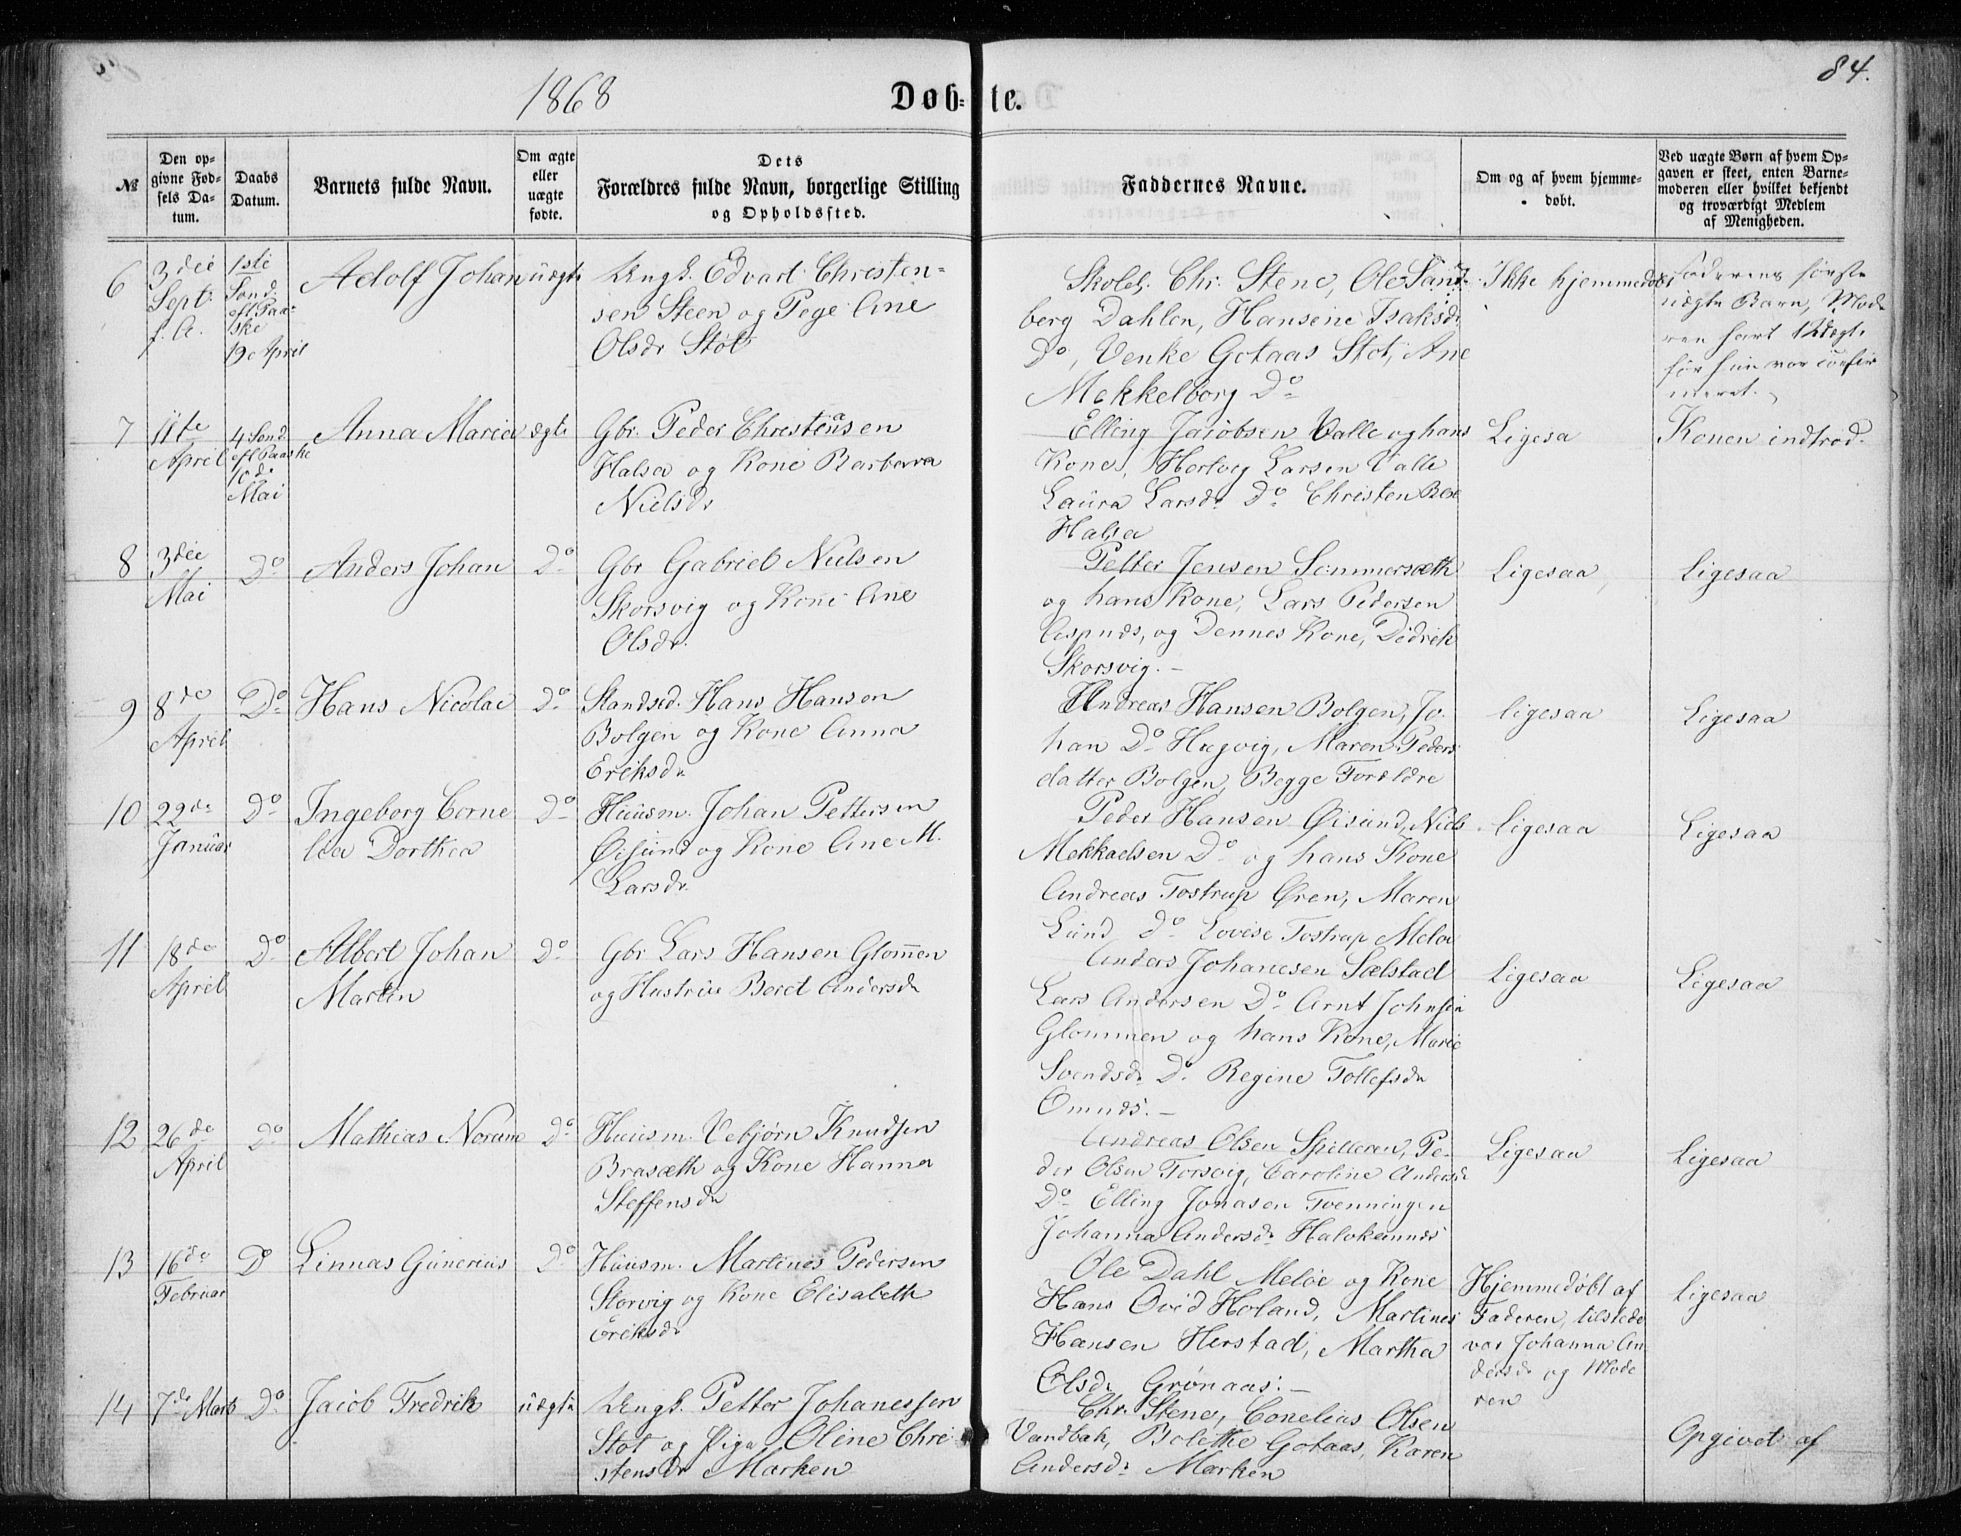 1868
Døb-te.
84.
№
Den op-
givne Fød-
sels Da-
tum.
Daabs
Datum.
Barnets fulde Navn.
Om ægte
eller
uægte
fødte.
Dets
Forældres fulde Navn, borgerlige Stilling
og Opholdssted.
Faddernes Navne.
Om og af hvem hjemme-
døbt.
Ved uægte Børn af hvem Op-
gaven er skeet, enten Barne-
moderen eller hvilket bekjendt
og troværdigt Medlem
af Menigheden.
6
3die
Sept.
f. A.
1ste
Sønd.
eft Paa-
ske
19e April
Adolf Johan
uægte
Ungk. Edvart Christen-
sen Steen og Pege Ane
Olsdr Støt
Skolel. Chr. Stene, Ole Sand-
berg Dahlen, Hansine Isaksdr
Do, Venke Gotaas Stot, Ane
Mekkelborg Do
Ikke hjemmedøbt
Faderens første
uægte Barn, Mode
ren havt 1 Uægte
før hun var confir
meret.
7
11te
April
4. Sønd
eft Paaske
10de
Mai
Anna Maria
ægte
Gbr. Peder Christensen
Halsa og Kone Barbara
Nielsdr
Elling Jacobsen Valle og hans
Kone, Hertvig Larsen Valle
Laura Larsdr Do Christen
Halsa
Ligesa
Konen indtrød.
8
3die
Mai
Do
Anders Johan
Do
Gbr Gabriel Nielsen
Skorsvig og Kone Ane
Olsdr.
Petter Jensen Sommersæth
og hans Kone, Lars Pedersen
og Dennes Kone, Didrik
Skorsvig.
Ligesaa
Ligesaa
9
8de
April
Do
Hans Nicolai
Do
Standsed. Hans Hansen
Bolgen og Kone Anna
Eriksdr
Andreas Hansen Bolgen, Jo-
han Do Hugvig, Maren Peders-
datter Bolgen, Begge Forældre
ligesaa
Ligesaa
10
22de
Januar
Do
Ingeborg Corne
lia Dorthea
Do
Huusm. Johan Pettersen
Øisund og Kone Ane M.
Larsdr.
Peder Hansen Øisund, Niels
Mekkaelsen Do og hans Kone
Andreas Tostrup Øren, Maren
Lund Do Lovise Tostrup Meløe
ligesaa
Ligesaa
11
18de
April
Do
Albert Johan
Martin
Do
Gbr Lars Hansen Glommen
og Hustrue Beret Andersdr
Anders Johanesen Sælstad
Lars Andersen Do Arnt Johnsen
Glommen og hans Kone, Marie
Svendsdr Do. Regine Tollefsdr
Ligesaa
Ligesaa
12
26de
April
Do
Mathias Norum
Do
Huusm. Vebjørn Knudsen
Brasæth og Kone Hanna
Steffensdr
Andreas Olsen Spilleren, Pe-
der Olsen Torsvig, Caroline Andersdr
Do Elling Jonasen Tvenningen
Johanna Andersdr
Ligesaa
Ligesaa
13
16de
Februar
Do
Linnas Gunerius
Do
Huusm. Martines Pedersen
Storvig og Kone Elisabeth
Eriksdr
Ole Dahl Meløe og Kone
Hans Ovid Holand, Martines
Hansen Herstad, Martha
Olsdr Grønaas.
Hjemmedøbt af
Faderen, tilstede
var Johanna An
dersdr og Mode
ren
Ligesaa
14
7de Marts
Do
Jacob Fredrik
uægte
Ungk. Petter Johanessen
Stot og Pige Oline Chri
stensdr Marken
Chr. Stene, Conelius Olsen
Vandbak, Bolette Gotaas, Karen
Andersdr Marken
Opgivet af